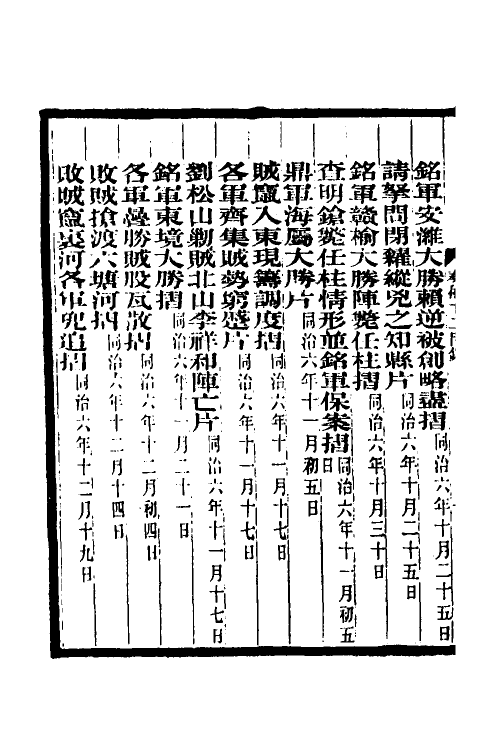 銘軍安濰大勝賴逆被創略盡摺同治六年十月二十五日
請拏問閉糴縱兇之知縣片同治六年十月二十五日
銘軍贛榆大勝陣斃任柱摺同治六年十月三十日
查明鎗斃任柱情形並銘軍保案摺同治六年十一月初五日
鼎軍海屬大勝片同治六年十一月初五日
賊竄入東現籌調度摺同治六年十一月十七日
各軍齊集賊勢窮蹙片同治六年十一月十七日
劉松山剿賊北山李祥和陣亡片同治六年十一月十七日
銘軍東境大勝摺同治六年十一月二十一日
各軍疊勝賊股瓦散摺同治六年十二月初四日
敗賊搶渡六塘河摺同治六年十二月十四日
敗賊竄裏河各軍兜追摺同治六年十二月十九日